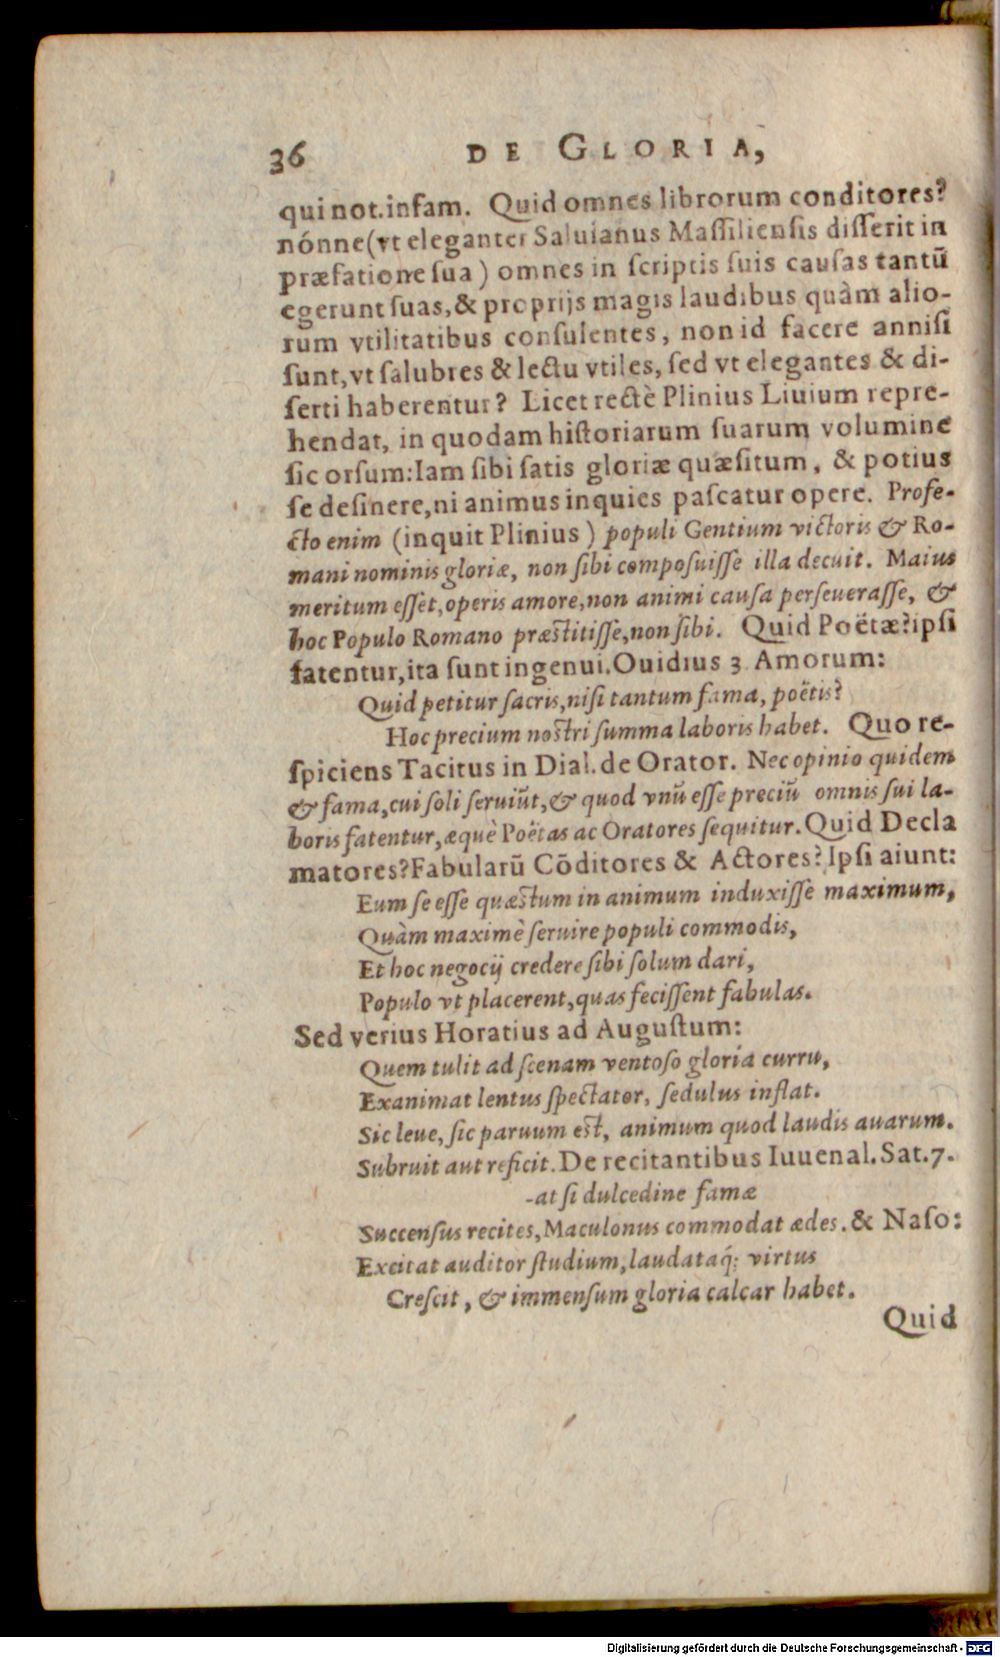 36 DE GLORIA,
qui not. infam. Quid omnes librorum conditores?
nónne (vt eleganter Saluianus Massiliensis disserit in
præfatione sua) omnes in scriptis suis causas tantū
egerunt suas, & proprijs magis laudibus quàm alio-
rum vtilitatibus consulentes, non id facere annisi
sunt, vt salubres & lectu vtiles, sed vt elegantes & di-
serti haberentur? Licet rectè Plinius Liuium repre-
hendat, in quodam historiarum suarum volumine
sic orsum: Iam sibi satis gloriæ quæsitum, & potius
se desinere, ni animus inquies pascatur opere. Profe-
cto enim (inquit Plinius) populi Gentium victoris & Ro-
mani nominis gloriæ, non sibi composuisse illa decuit. Maius
meritum esset, operis amore, non animi causa perseuerasse, &
hoc Populo Romano præstitisse, non sibi. Quid Poëtæ? ipsi
fatentur, ita sunt ingenui. Ouidius 3 Amorum:
Quid petitur sacris, nisi tantum fama, poëtis?
Hoc precium nostri summa laboris habet. Quo re-
spiciens Tacitus in Dial. de Orator. Nec opinio quidem
& fama, cui soli seruiūt, & quod vnū esse preciū omnis sui la-
boris fatentur, æquè Poëtas ac Oratores sequitur. Quid Decla
matores? Fabularū Cōditores & Actores? Ipsi aiunt:
Eum se esse quæstum in animum induxisse maximum,
Quàm maximè seruire populi commodis,
Et hoc negocij credere sibi solum dari,
Populo vt placerent, quas fecissent fabulas.
Sed verius Horatius ad Augustum:
Quem tulit ad scenam ventoso gloria curru,
Exanimat lentus spectator, sedulus inflat.
Sic leue, sic paruum est, animum quod laudis auarum.
Subruit aut reficit. De recitantibus Iuuenal. Sat. 7.
-at si dulcedine famæ
Succensus recites, Maculonus commodat ædes. & Naso:
Excitat auditor studium, laudataq́; virtus
Crescit, & immensum gloria calcar habet.
Quid
Digitalisierung gefördert durch die Deutsche Forschungsgemeinschaft - DFG